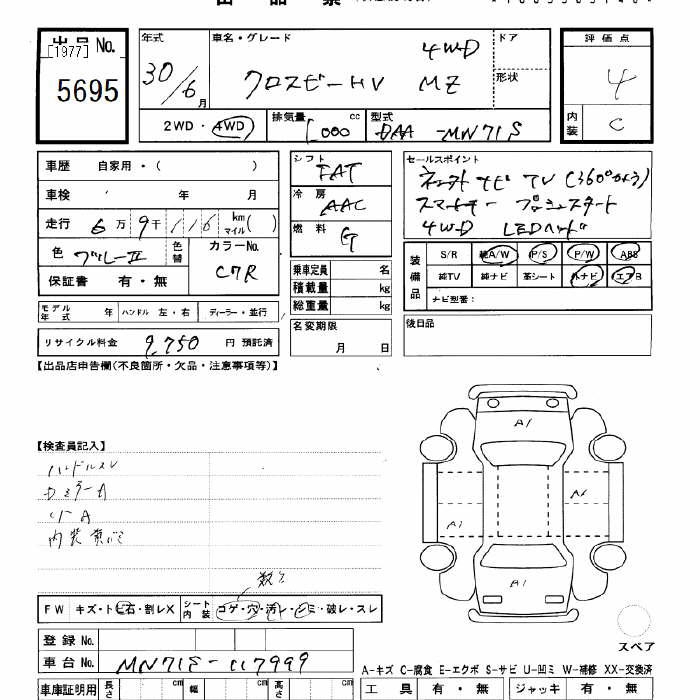 出品票
出品No.
[1977]
5695
年式 車名・グレード ドア
30/6月 クロスビーHV 4WD MZ 形状
2WD・4WD 排気量 1000 cc 型式 DAA-MN71S
評価点
4
内装 C
車歴 自家用・( )
車検 年 月
走行 6万9千116 km マイル( )
色 ブルーII 色替 カラーNo. C7R
保証書 有・無
モデル年式 年 ハンドル 左・右 ディーラー・並行
リサイクル料金 9,750 円 預託済
シフト FAT
冷房 AAC
燃料 G
乗車定員 名
積載量 kg
総重量 kg
名変期限
月 日
セールスポイント
ナビ TV (360°カメラ)
スマートキー プッシュスタート
4WD LEDヘッド
装備品 S/R 純A/W P/S P/W ABS
純TV 純ナビ 革シート 外ナビ エアB
ナビ型番:
後日品
【出品店申告欄(不良箇所・欠品・注意事項等)】
【検査員記入】
ハンドルスレ
ミラーA
A
内装
FW キズ・ト石・割レX シート内装 コゲ・穴・汚レ・シミ・破レ・スレ
登録No.
車台No. MN71S-117999
車庫証明用 長さ cm 幅 cm 高さ cm
A1
A1
A1
スペア
A-キズ C-腐食 E-エクボ S-サビ U-凹ミ W-補修 XX-交換済
工具 有・無 ジャッキ 有・無